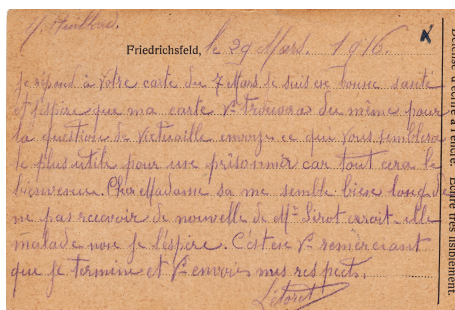 Friedrichsfeld, le 29 Mars. 1916.
Je répond à votre carte du 7 Mars. Je suis en bonne santé
et j'espère que ma carte Vs trouvera du même pour
la question de victuaille envoyez ce que vous semblera
le plus utile pour un prisonnier car tout cera le
bienvenue. Chère Madame sa me semble bien long de
ne pas recevoir de nouvelle de Mr Sirot serait-elle
malade non je l'espère. C'est en Vs remerciant
que je termine et Vs envois mes respects.
Létoret
Défense d'écrire à l'encre. Ecrire très lisiblement.